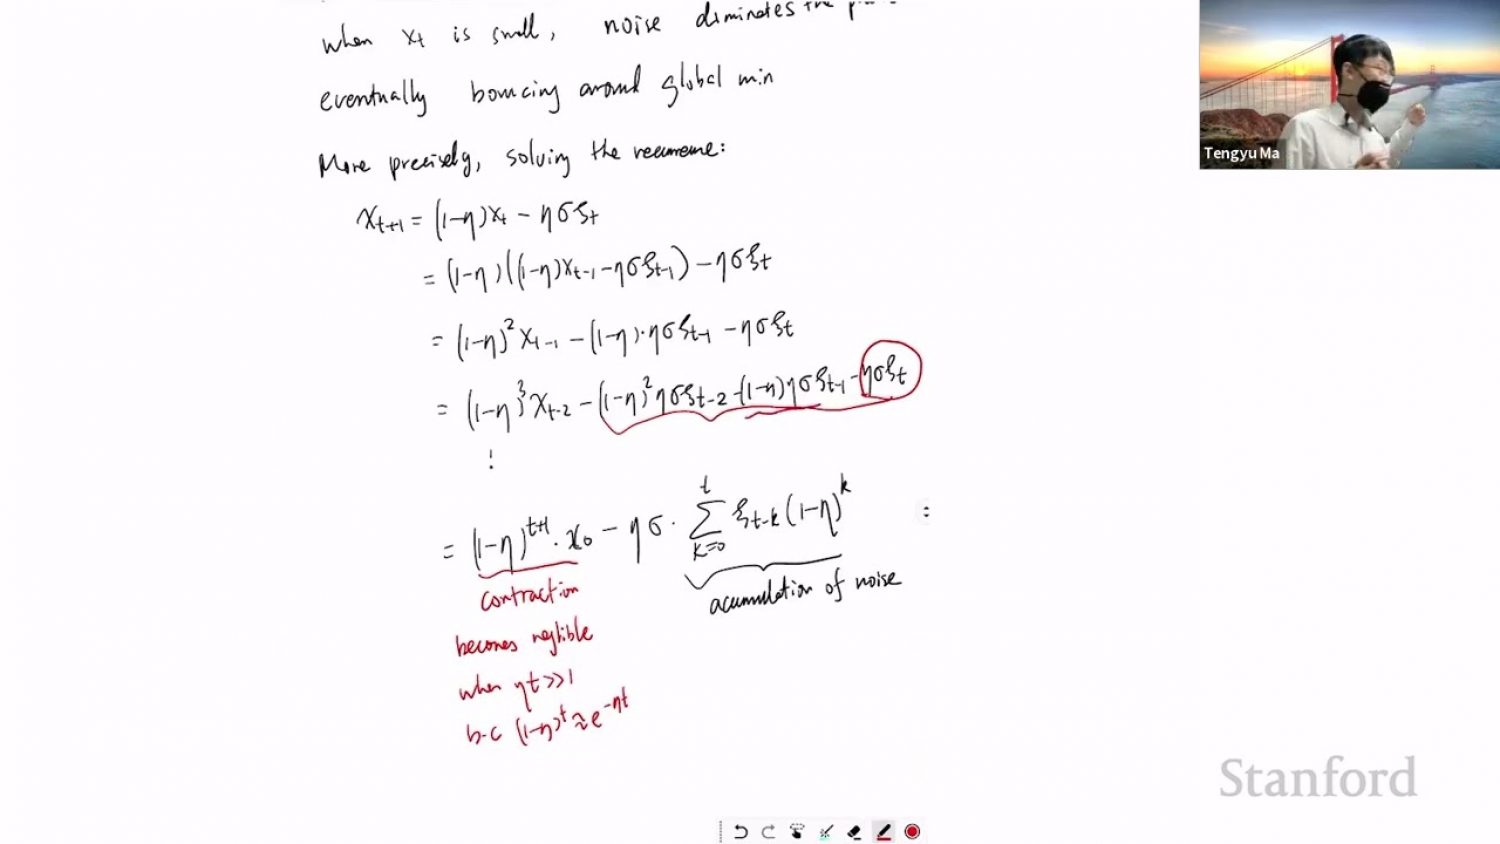 when xₜ is small, noise diminates the
eventually bouncing around global min
More precisely, solving the recurrence:
xₜ₊₁ = (1-η)xₜ - ησξₜ
= (1-η)((1-η)xₜ₋₁ - ησξₜ₋₁) - ησξₜ
= (1-η)² xₜ₋₁ - (1-η)·ησξₜ₋₁ - ησξₜ
= (1-η)³ xₜ₋₂ - (1-η)² ησξₜ₋₂ - (1-η)ησξₜ₋₁ - ησξₜ
⋮
= (1-η)ᵗ⁺¹ · x₀ - ησ · ∑ₖ₌₀ᵗ ξₜ₋ₖ (1-η)ᵏ
contraction
acumulation of noise
becomes neglible
when ηt >> 1
b.c (1-η)ᵗ ≈ e^{-ηt}
Tengyu Ma
Stanford